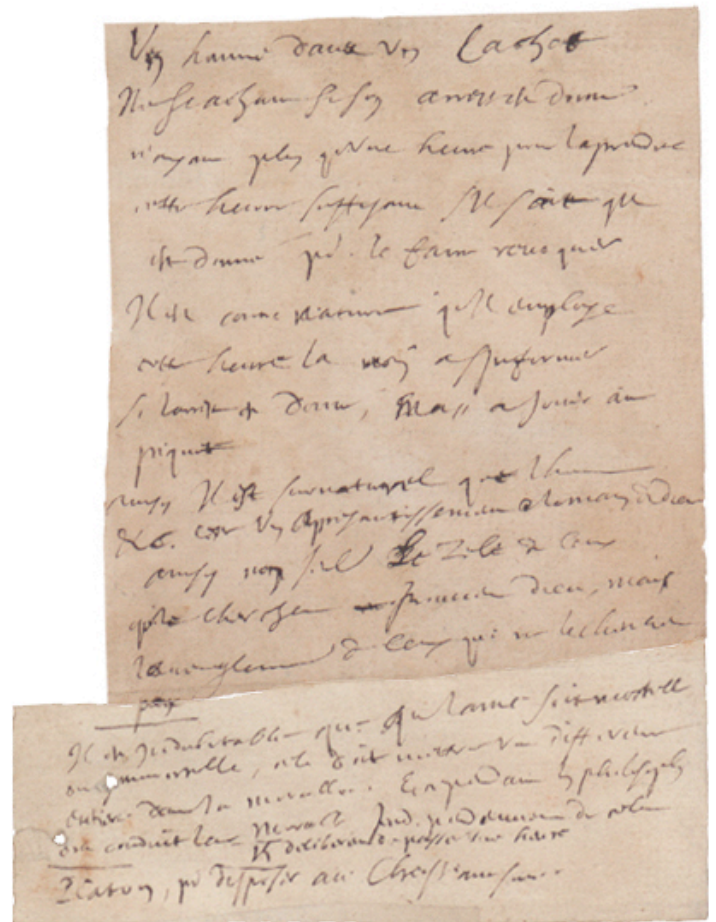 Un homme dans un Cachot
Ne sçachant si son arrest est donné
n'ayant plus qu'une heure pour l'aprendre
cette heure suffisant s'il sçait qu'il
est donné pr. le faire revoquer
Il est contre nature qu'il employe
cette heure la non a s'informer
si l'arrest est donné, mais a jouer au
piquet
ainsy Il est surnaturel que lhomme
&c. c'est un apesantissement de la main de dieu
ainsy non seul Le Zele de ceux
qui le cherchent prouve dieu, mais
l'aveuglement de ceux qui ne le cherchent
pas
Il est indubitable que que l'ame soit mortelle
ou immortelle, cela doit mettre une difference
entiere dans la moralle. Et cependant les philosophes
ont conduit leur moralle independamment de cela
Ils deliberent de passer une heure
Platon, pr disposer au Christianisme.